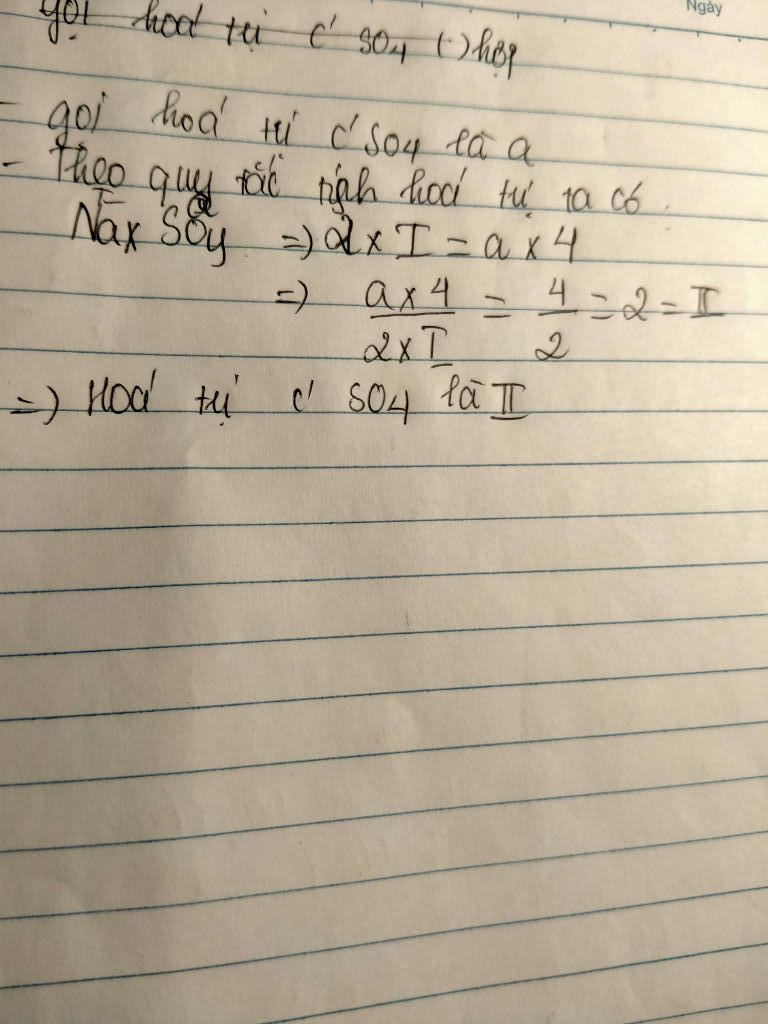 Ngày
gọi hoá trị c' SO4 (·) hợp
- gọi hoá trị c' SO4 là a
- Theo quy tắc tính hoá trị ta có.
I a
Nax SO4y => 2 x I = a x 4
=> a x 4 / 2 x I = 4 / 2 = 2 = II
=) Hoá trị c' SO4 là II